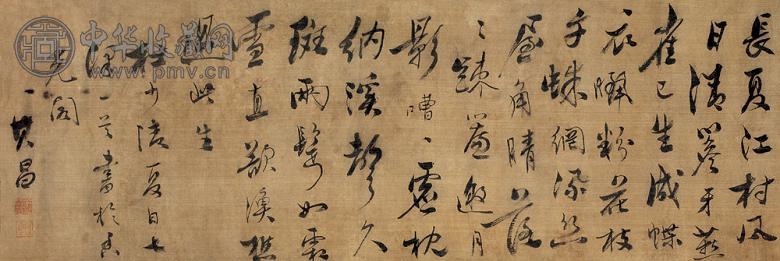 長夏江村風
日清簷牙燕
雀已生成蝶
衣曬粉花枝
午蛛網添絲
屋角晴落
〻疎簾邀月
影嘈〻虛枕
納溪聲久
斑兩鬢如霜
雪直欲漁樵
過此生
杜少陵夏日七
律一首書於
光閣
其昌
中华收藏网
www.pmv.cn